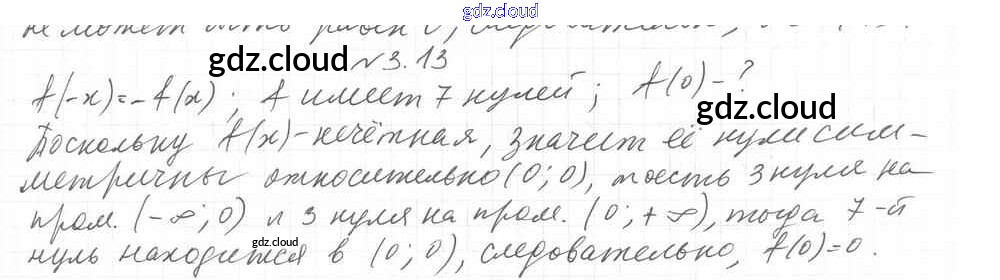 gdz.cloud
не может быть равен 0, следовательно,
gdz.cloud
№3.13
f(-x)=-f(x); f имеет 7 нулей; f(0)-?
gdz.cloud
Поскольку f(x)-нечётная, значит её нули сим-
метричны относительно (0;0), то есть 3 нуля на
пром. (-∞;0) и 3 нуля на пром. (0;+∞), тогда 7-й
gdz.cloud
нуль находится в (0;0), следовательно, f(0)=0.